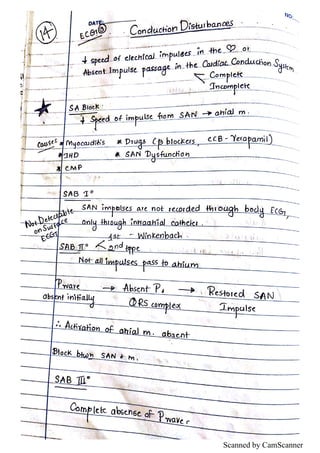 NO.
DATE
14
ECG ③
Conduction Disturbances
↓ speed of electrical impulses in the ♡ or
Absent Impulse passage in the Cardiac Conduction System
Complete
Incomplete
★
SA Block:
↓ Speed of impulse from SAN → atrial m.
Causes * Myocarditis * Drugs (β blockers, CCB - Verapamil)
* IHD * SAN Dysfunction
* CMP
SAB I°
Not Detectable on Surface ECGs
SAN impulses are not recorded through body ECGs,
only through intraatrial catheter.
SAB II° < 1st - Winkenbach
2nd type
Not all impulses pass to atrium
Pwave → Absent P, → Restored SAN
absent initially QRS complex Impulse
∴ Activation of atrial m. absent
Block btwn SAN & m.
SAB III°
Complete absense of Pwaves
Scanned by CamScanner